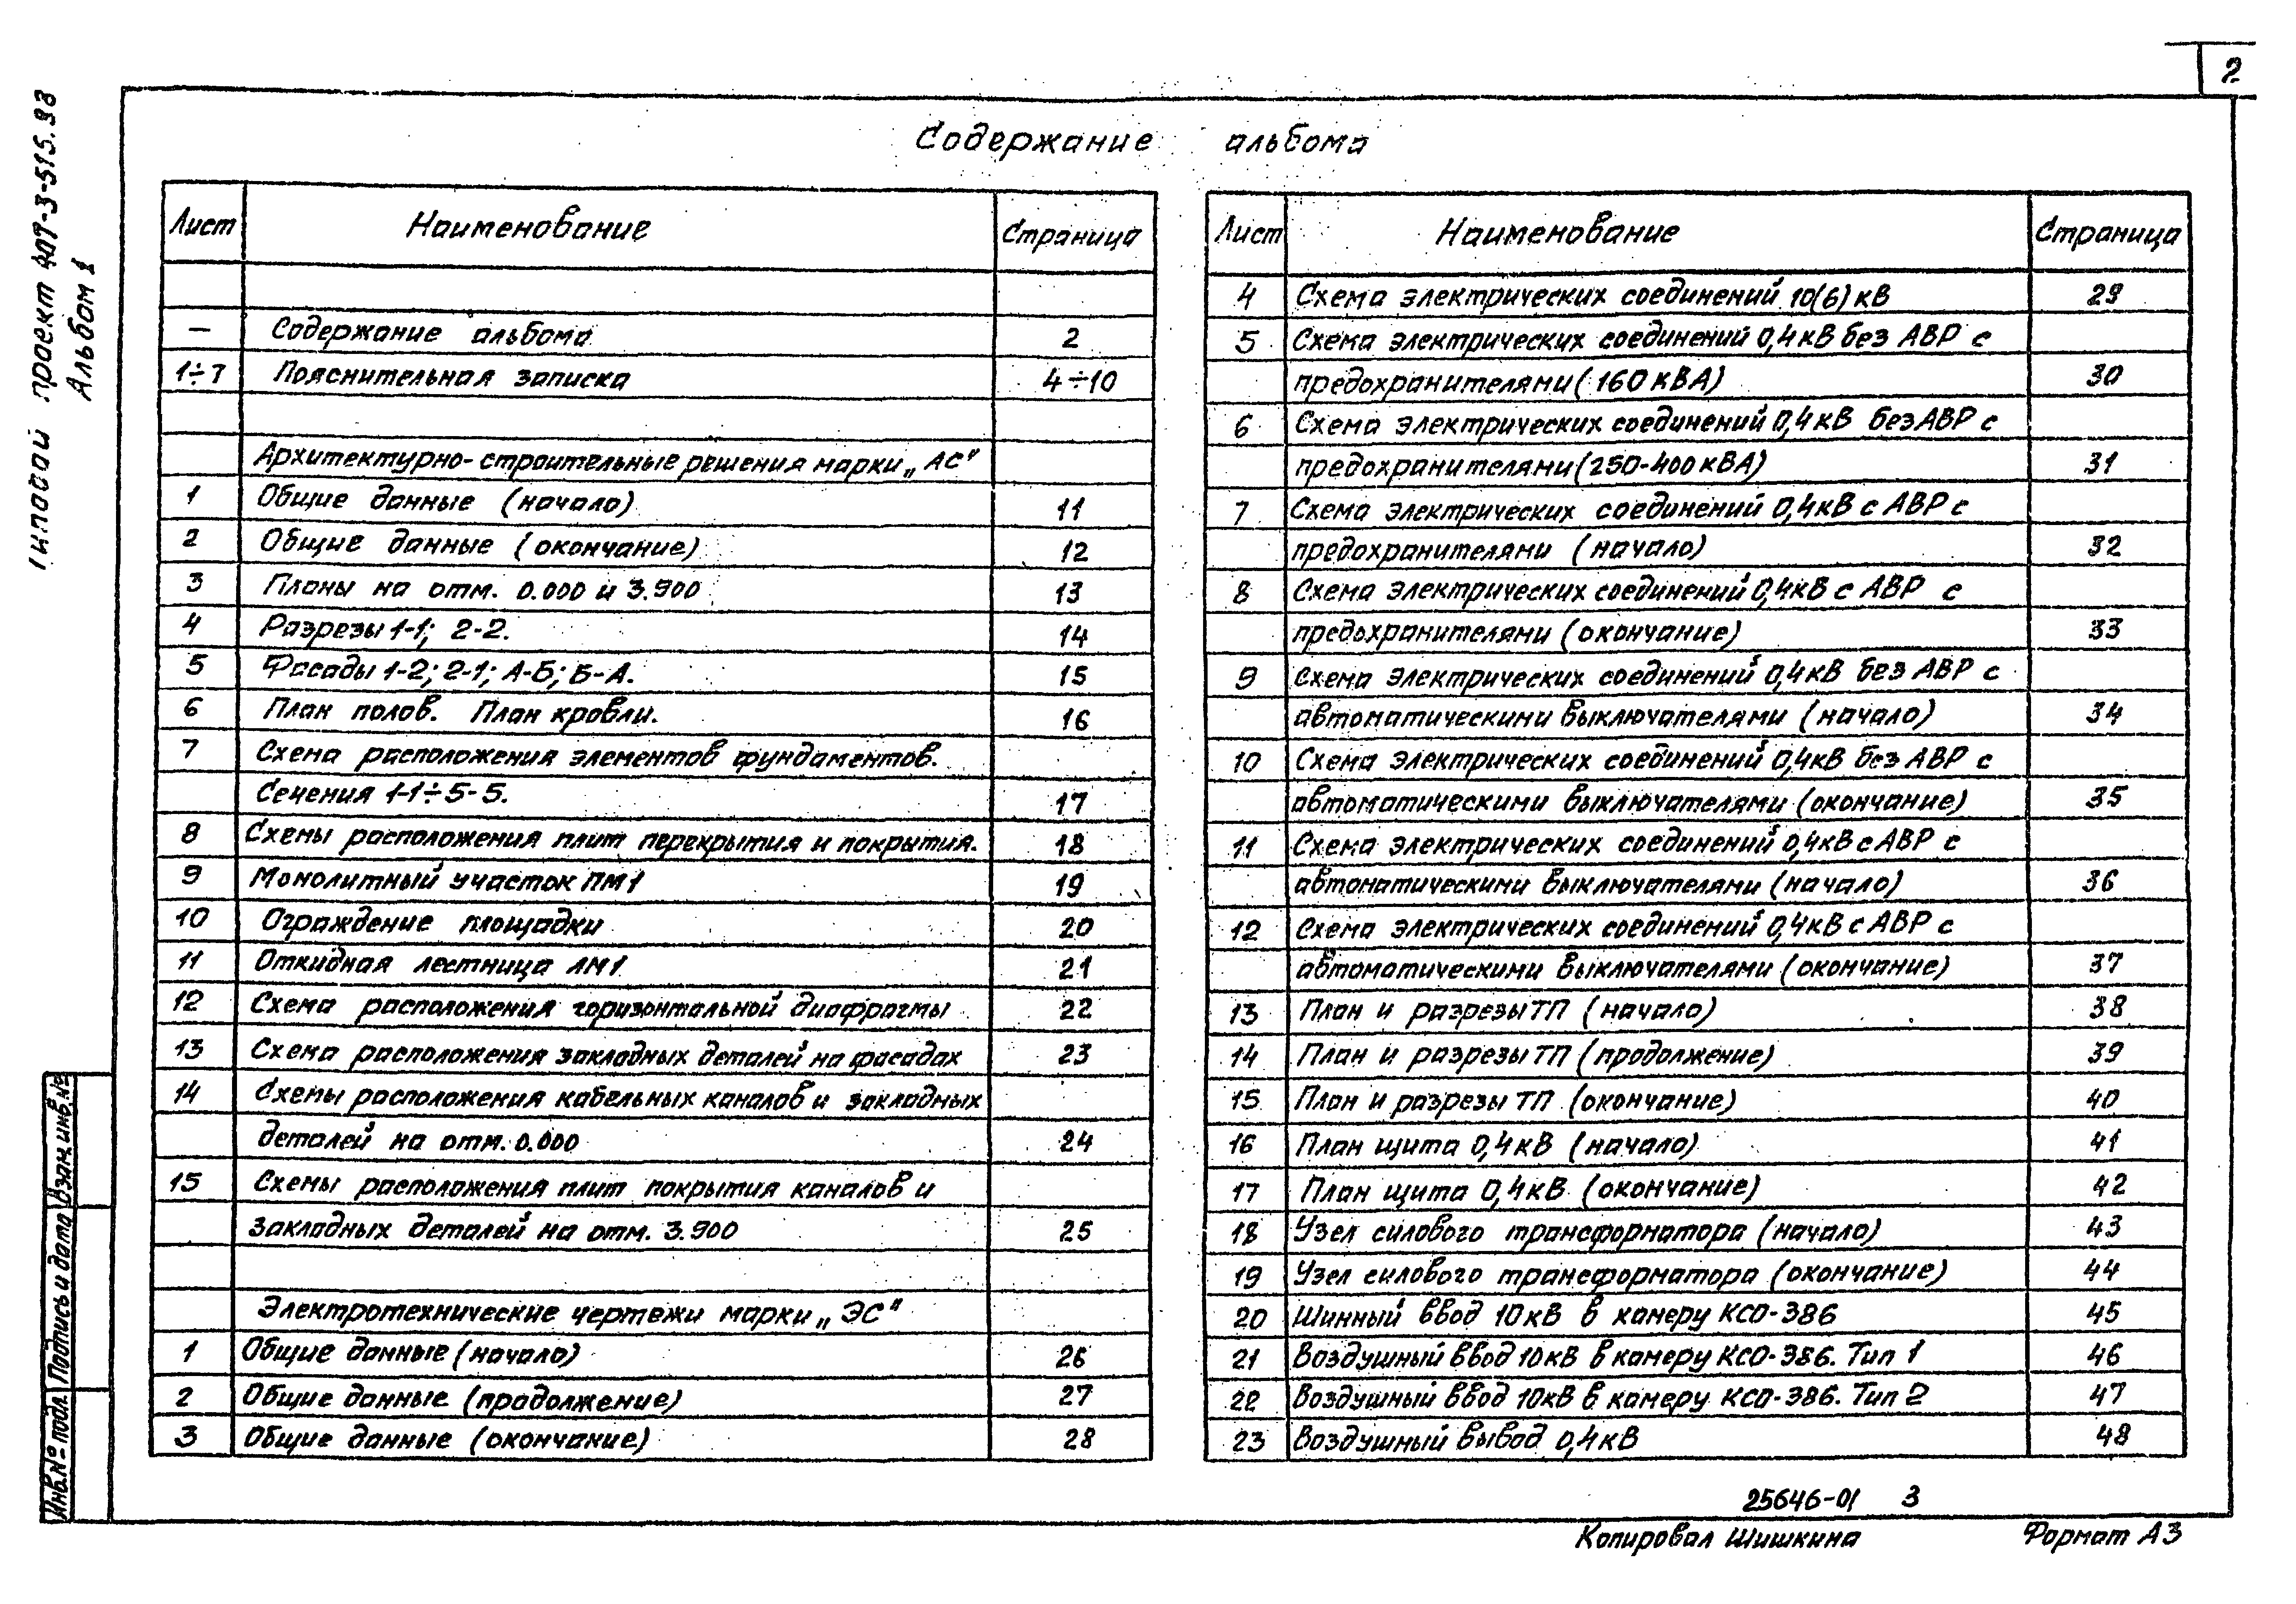 2
Типовой проект 407-3-515.93
Альбом 1
Содержание альбома
Лист Наименование Страница
— Содержание альбома 2
1÷7 Пояснительная записка 4÷10
Архитектурно-строительные решения марки „АС"
1 Общие данные (начало) 11
2 Общие данные (окончание) 12
3 Планы на отм. 0.000 и 3.900 13
4 Разрезы 1-1; 2-2. 14
5 Фасады 1-2; 2-1; А-Б; Б-А. 15
6 План полов. План кровли. 16
7 Схема расположения элементов фундаментов.
Сечения 1-1÷5-5. 17
8 Схемы расположения плит перекрытия и покрытия. 18
9 Монолитный участок ПМ1 19
10 Ограждение площадки 20
11 Откидная лестница ЛМ1 21
12 Схема расположения горизонтальной диафрагмы 22
13 Схема расположения закладных деталей на фасадах 23
14 Схемы расположения кабельных каналов и закладных
деталей на отм. 0.000 24
15 Схемы расположения плит покрытия каналов и
закладных деталей на отм. 3.900 25
Электротехнические чертежи марки „ЭС"
1 Общие данные (начало) 26
2 Общие данные (продолжение) 27
3 Общие данные (окончание) 28
Лист Наименование Страница
4 Схема электрических соединений 10(6) кВ 29
5 Схема электрических соединений 0,4кВ без АВР с
предохранителями (160 кВА) 30
6 Схема электрических соединений 0,4кВ без АВР с
предохранителями (250-400 кВА) 31
7 Схема электрических соединений 0,4кВ с АВР с
предохранителями (начало) 32
8 Схема электрических соединений 0,4кВ с АВР с
предохранителями (окончание) 33
9 Схема электрических соединений 0,4кВ без АВР с
автоматическими выключателями (начало) 34
10 Схема электрических соединений 0,4кВ без АВР с
автоматическими выключателями (окончание) 35
11 Схема электрических соединений 0,4кВ с АВР с
автоматическими выключателями (начало) 36
12 Схема электрических соединений 0,4кВ с АВР с
автоматическими выключателями (окончание) 37
13 План и разрезы ТП (начало) 38
14 План и разрезы ТП (продолжение) 39
15 План и разрезы ТП (окончание) 40
16 План щита 0,4кВ (начало) 41
17 План щита 0,4кВ (окончание) 42
18 Узел силового трансформатора (начало) 43
19 Узел силового трансформатора (окончание) 44
20 Шинный ввод 10кВ в камеру КСО-386 45
21 Воздушный ввод 10кВ в камеру КСО-386. Тип 1 46
22 Воздушный ввод 10кВ в камеру КСО-386. Тип 2 47
23 Воздушный вывод 0,4кВ 48
Инв.№ подл. Подпись и дата Взам. инв.№
25646-01 3
Копировал Шишкина Формат А3